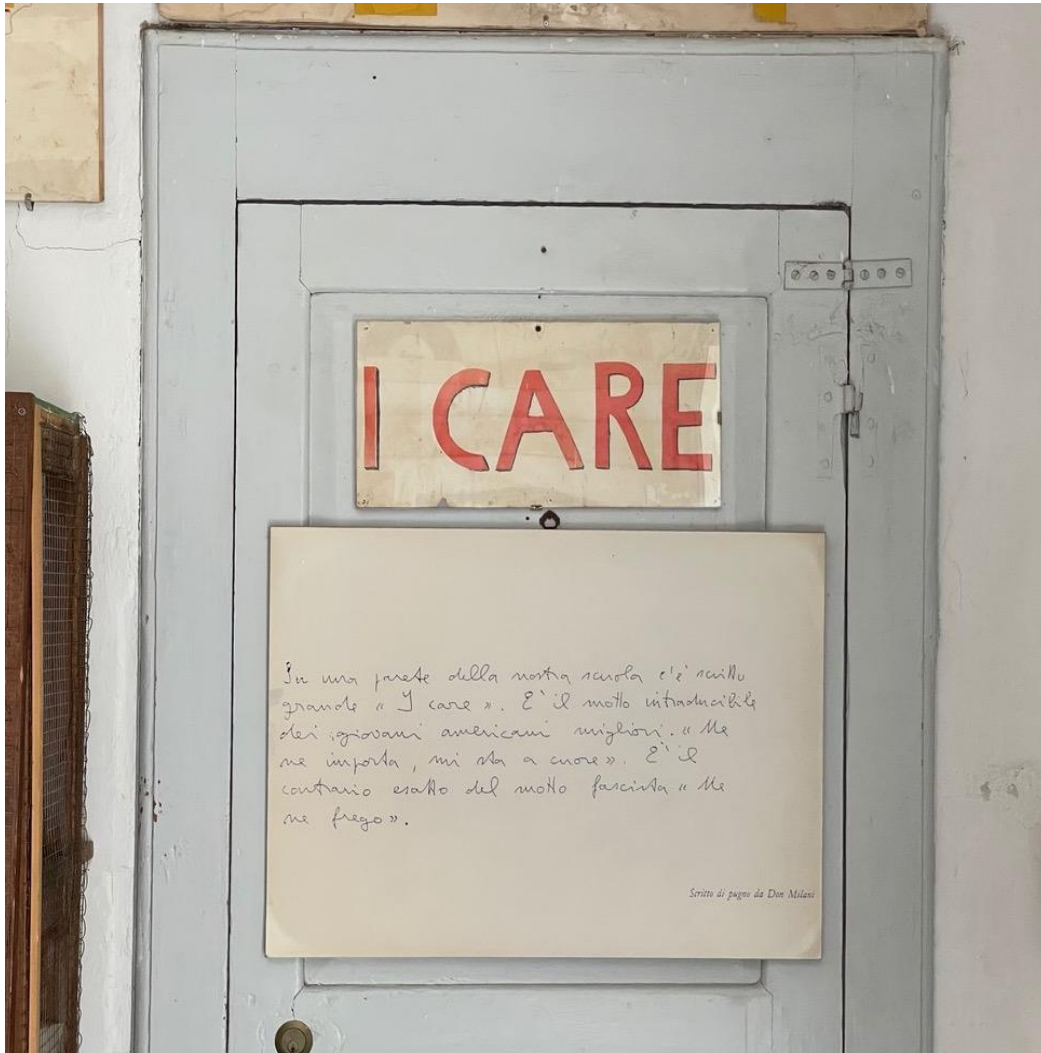 I CARE
Su una parete della nostra scuola c'è scritto
grande « I care ». E' il motto intraducibile
dei giovani americani migliori. « Me
ne importa, mi sta a cuore ». E' il
contrario esatto del motto fascista « Me
ne frego ».
Scritto di pugno da Don Milani